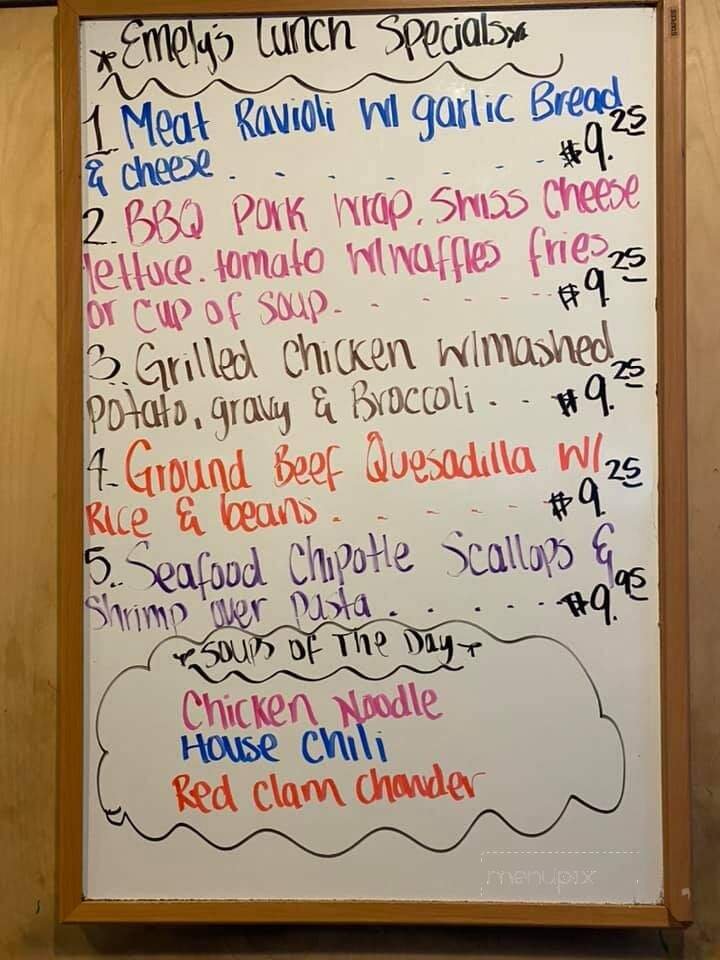 *Emely's Lunch Specials*
1 Meat Ravioli w/ garlic Bread
& cheese . . . . . . . $9.25
2. BBQ Pork wrap, Swiss Cheese
lettuce. tomato w/waffles fries
or cup of soup. . . . . . $9.25
3. Grilled Chicken w/mashed
Potato, gravy & Broccoli . . $9.25
4. Ground Beef Quesadilla w/
Rice & beans . . . . . $9.25
5. Seafood Chipotle Scallops &
Shrimp over Pasta . . . . . $9.95
Soups of The Day
Chicken Noodle
House Chili
Red Clam Chowder
menupix
STAPLES